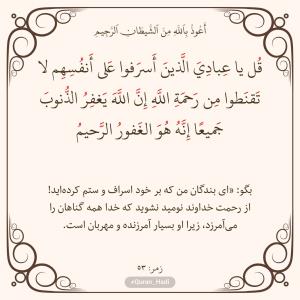 أَعُوذُ بِاللَّهِ مِنَ الشَّيْطَانِ الرَّجِيمِ
قُل يا عِبادِيَ الَّذينَ أَسرَفوا عَلىٰ أَنفُسِهِم لا
تَقنَطوا مِن رَحمَةِ اللَّهِ إِنَّ اللَّهَ يَغفِرُ الذُّنوبَ
جَميعًا إِنَّهُ هُوَ الغَفورُ الرَّحيمُ
بگو: «ای بندگان من که بر خود اسراف و ستم کرده‌اید!
از رحمت خداوند نومید نشوید که خدا همه گناهان را
می‌آمرزد، زیرا او بسیار آمرزنده و مهربان است.
زمر: ۵۳
@Quran_Hadi